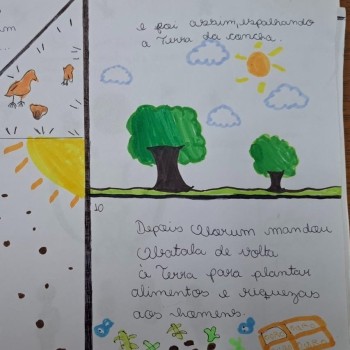 e foi assim, espalhando
a Terra da concha.
10
Depois Olorum mandou
Obatala de volta
à Terra para plantar
alimentos e riquezas
aos homens.